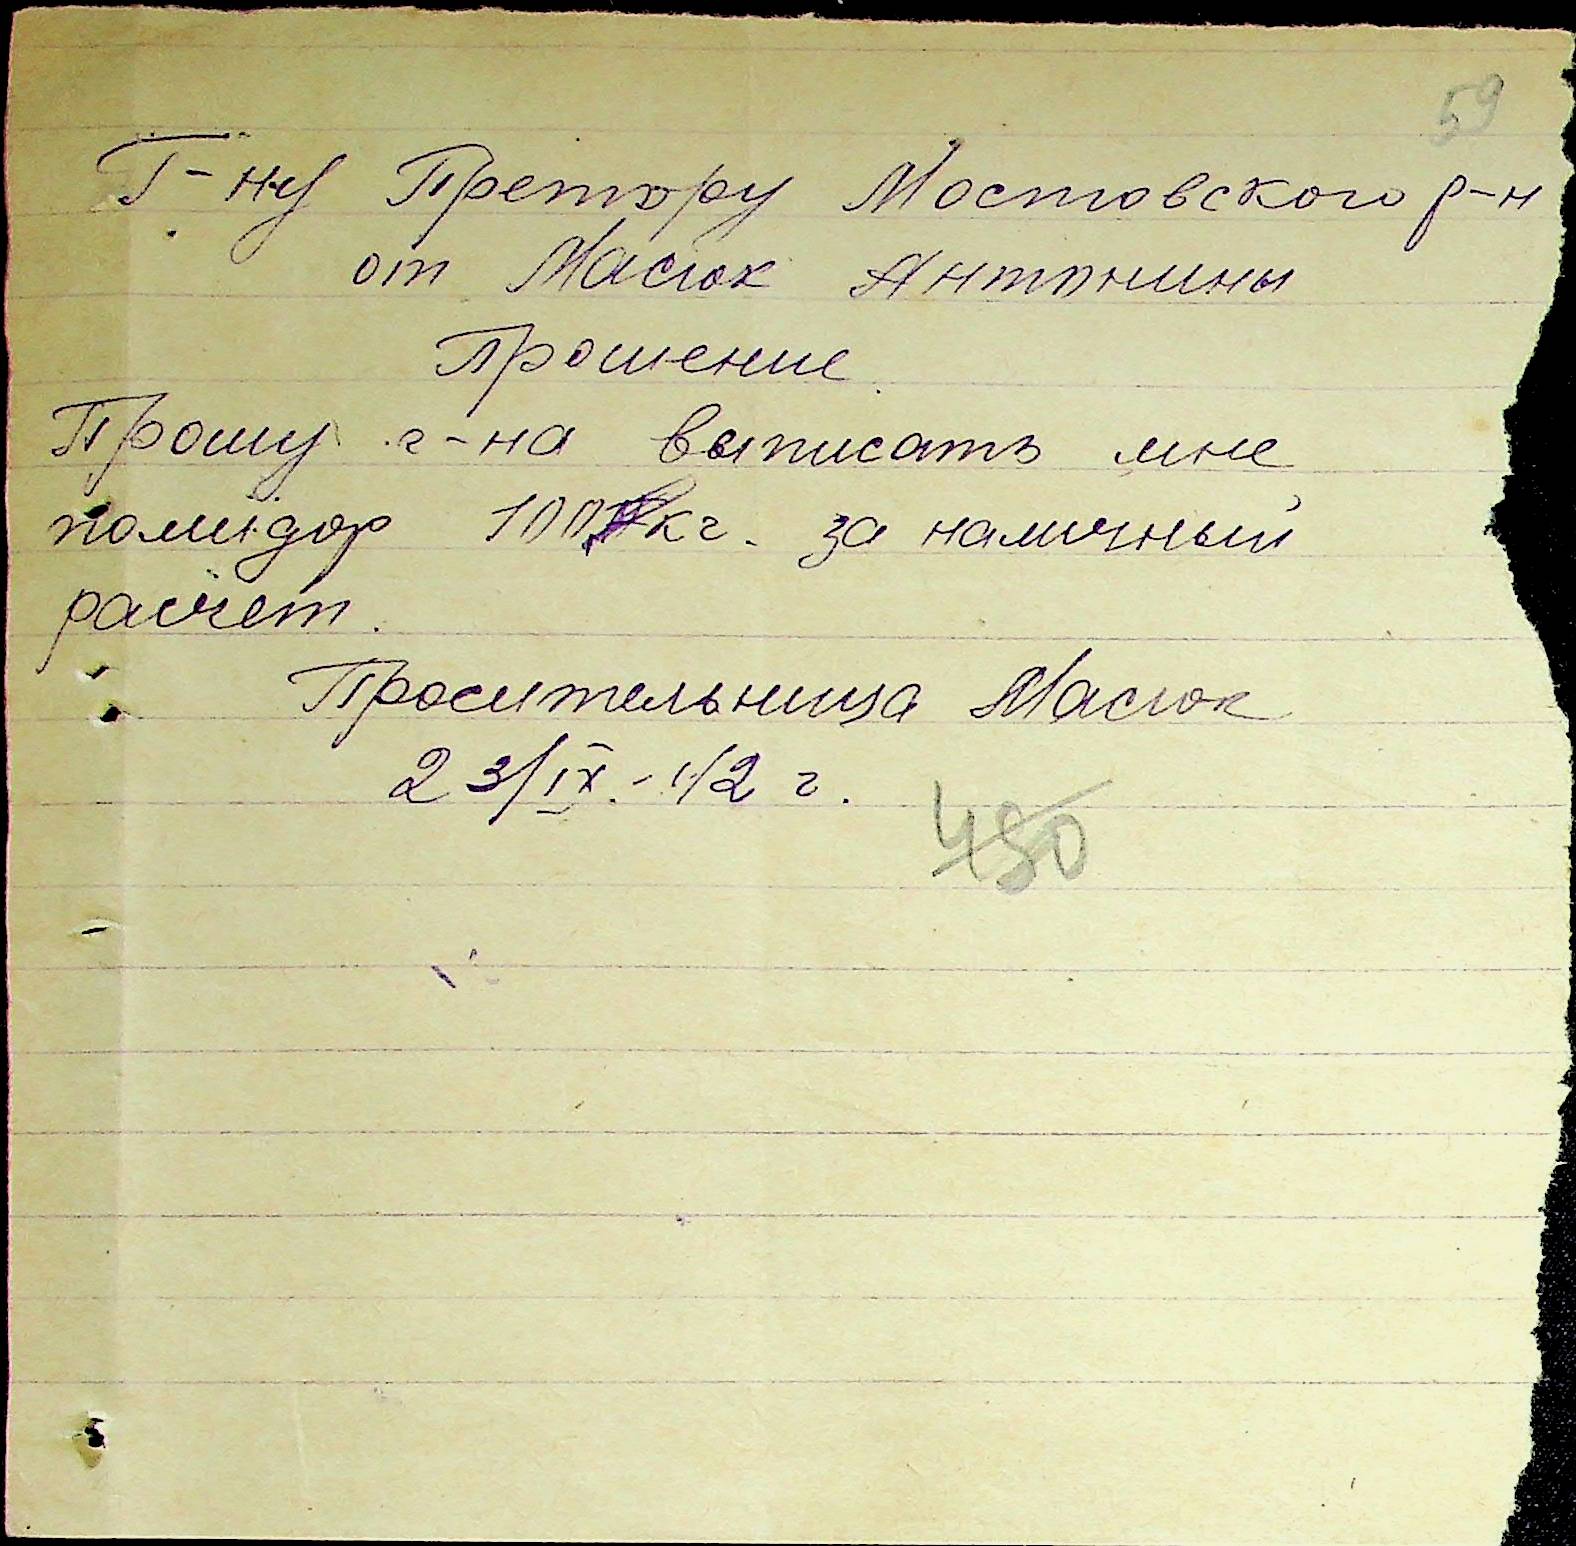 59
Г-ну Претору Мостовского р-н
от Масюк Антонины
Прошение
Прошу г-на выписать мне
помидор 100 кг. за наличный
расчет.
Просительница Масюк
23/IX.-42 г.
450